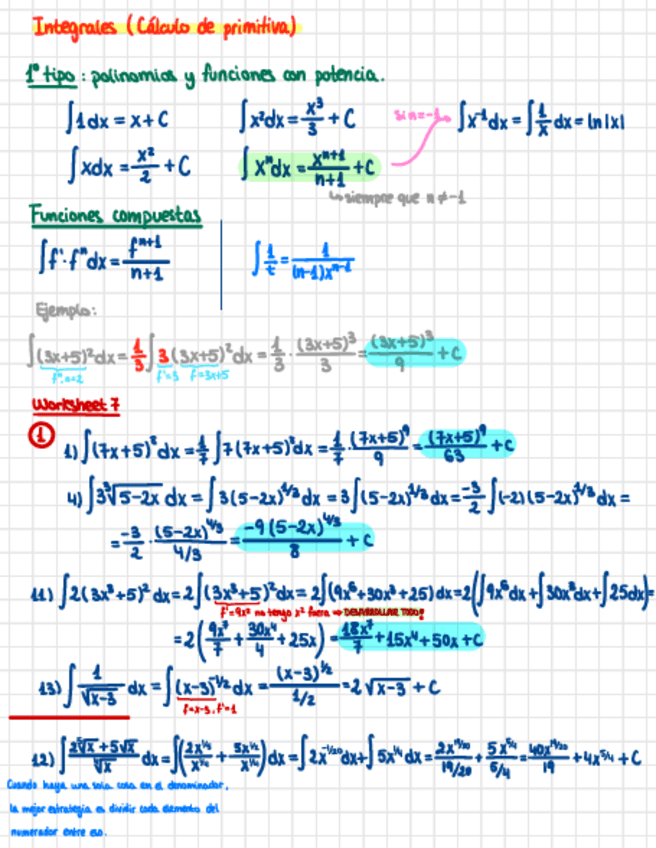 Integrales (Cálculo de primitiva)
1º tipo: polinomios y funciones con potencia.
∫1dx = x+C ∫x²dx = x³/3 + C si n=-1 ∫x⁻¹dx = ∫1/x dx = ln|x|
∫xdx = x²/2 + C ∫xⁿdx = xⁿ⁺¹/n+1 + C
↳ siempre que n ≠ -1
Funciones compuestas
∫f'·fⁿdx = fⁿ⁺¹/n+1 ∫1/t = 1/(n-1)xⁿ⁻¹
Ejemplo:
∫(3x+5)²dx = 1/3 ∫3(3x+5)²dx = 1/3 · (3x+5)³/3 = (3x+5)³/9 + C
fⁿ, n=2 f'=3 f=3x+5
Worksheet 7
① 1) ∫(7x+5)⁸dx = 1/7 ∫7(7x+5)⁸dx = 1/7 · (7x+5)⁹/9 = (7x+5)⁹/63 + C
4) ∫3∛5-2x dx = ∫3(5-2x)^1/3 dx = 3∫(5-2x)^1/3 dx = -3/2 ∫(-2)(5-2x)^1/3 dx =
= -3/2 · (5-2x)^4/3 / 4/3 = -9(5-2x)^4/3 / 8 + C
11) ∫2(3x³+5)² dx = 2∫(3x³+5)²dx = 2∫(9x⁶+30x³+25)dx = 2(∫9x⁶dx+∫30x³dx+∫25dx)=
f'=9x² no tengo x² fuera ⇒ DESARROLLAR TODO!
= 2(9x⁷/7 + 30x⁴/4 + 25x) = 18x⁷/7 + 15x⁴ + 50x + C
13) ∫1/√x-3 dx = ∫(x-3)^-1/2 dx = (x-3)^1/2 / 1/2 = 2√x-3 + C
f=x-3, f'=1
12) ∫ 2⁵√x + 5√x / ⁴√x dx = ∫(2x^1/5 / x^1/4 + 5x^1/2 / x^1/4) dx = ∫2x^-1/20 dx + ∫5x^1/4 dx = 2x^19/20 / 19/20 + 5x^5/4 / 5/4 = 40x^19/20 / 19 + 4x^5/4 + C
Cuando haya una sola cosa en el denominador,
la mejor estrategia es dividir cada elemento del
numerador entre eso.